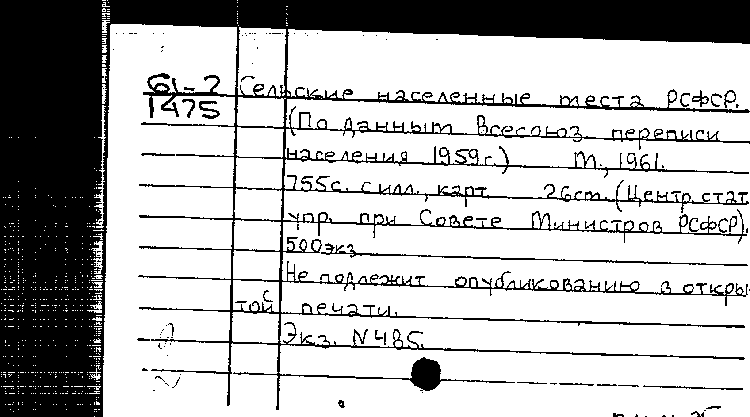 61-2 Сельские населенные места РСФСР.
1475
(По данным Всесоюз. переписи
населения 1959г.) М., 1961.
755с. с илл., карт. 26см. (Центр. стат.
упр. при Совете Министров РСФСР).
500экз.
Не подлежит опубликованию в откры-
той печати.
с
Экз. N485.